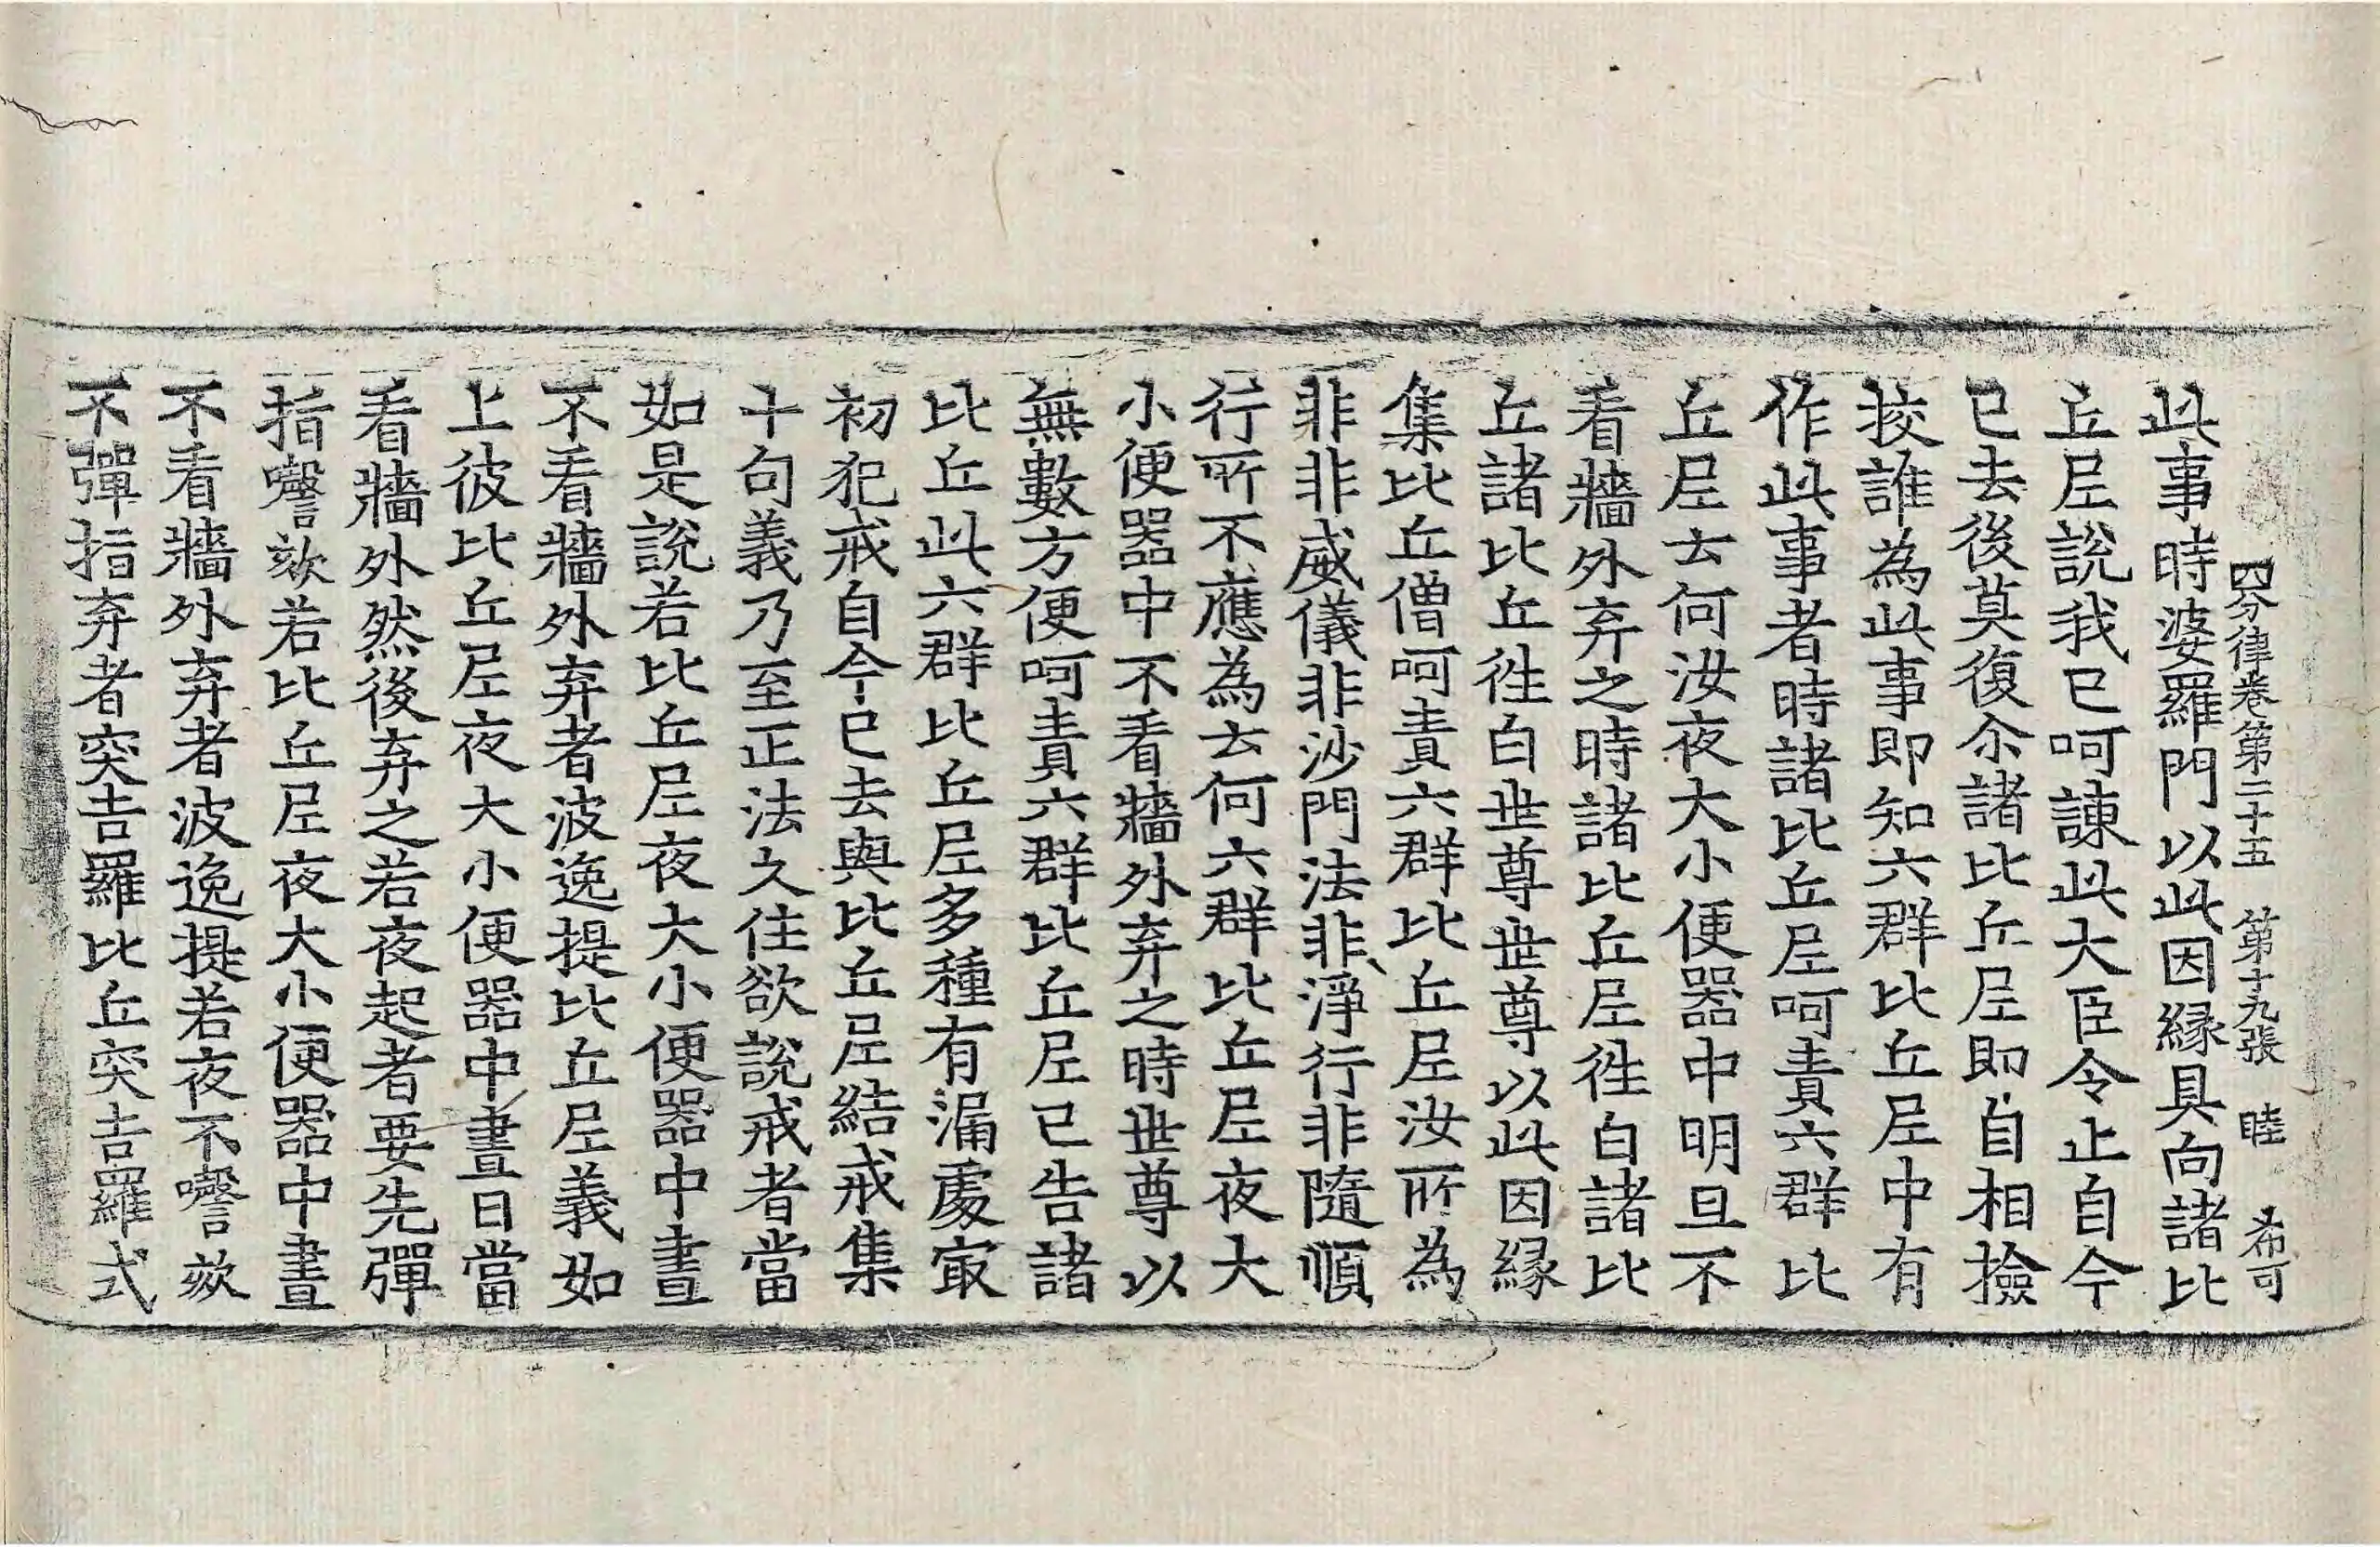 四分律卷第二十五　第十九張　睦　希可
此事時婆羅門以此因縁具向諸比
丘尼說我已呵諫此大臣令止自今
已去後莫復尒諸比丘尼即自相撿
挍誰為此事即知六群比丘尼中有
作此事者時諸比丘尼呵責六群比
丘尼去何汝夜大小便器中明旦不
看牆外弃之時諸比丘尼徃白諸比
丘諸比丘徃白世尊世尊以此因縁
集比丘僧呵責六群比丘尼汝所為
非非威儀非沙門法非淨行非隨順
行所不應為去何六群比丘尼夜大
小便器中不看牆外弃之時世尊以
無數方便呵責六群比丘尼已告諸
比丘此六群比丘尼多種有漏處㝡
初犯戒自今已去與比丘尼結戒集
十句義乃至正法久住欲說戒者當
如是說若比丘尼夜大小便器中晝
不看牆外弃者波逸提比丘尼義如
上彼比丘尼夜大小便器中晝日當
看牆外然後弃之若夜起者要先彈
指謦欬若比丘尼夜大小便器中晝
不看牆外弃者波逸提若夜不謦欬
不彈指弃者突吉羅比丘突吉羅式